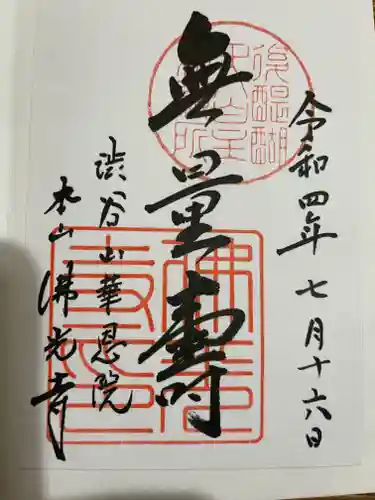 令和四年七月十六日
無量壽
渋谷山華恩院
本山佛光寺
後醍醐
天皇